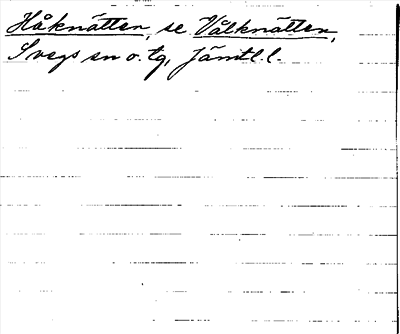 Håknätten, se Vålknätten,
Svegs sn o. tg, Jämtl. l.